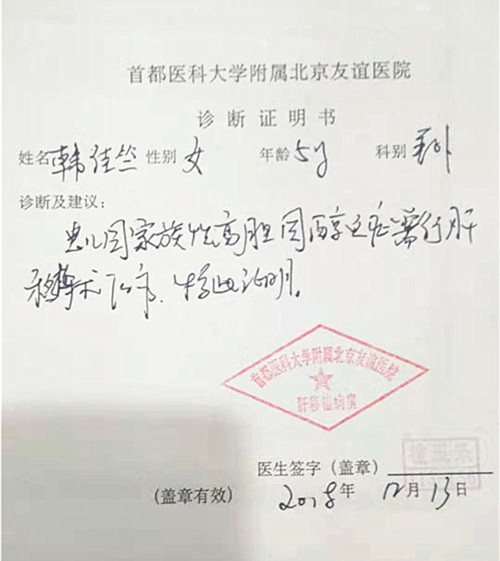 首都医科大学附属北京友谊医院
诊断证明书
姓名 韩佳竺 性别 女 年龄 5y 科别
诊断及建议:
患儿因家族性高胆固醇血症需行肝
移植术治疗.特此证明.
首都医科大学附属北京友谊医院
肝移植病房
医生签字(盖章)
(盖章有效) 2018年 12月13日